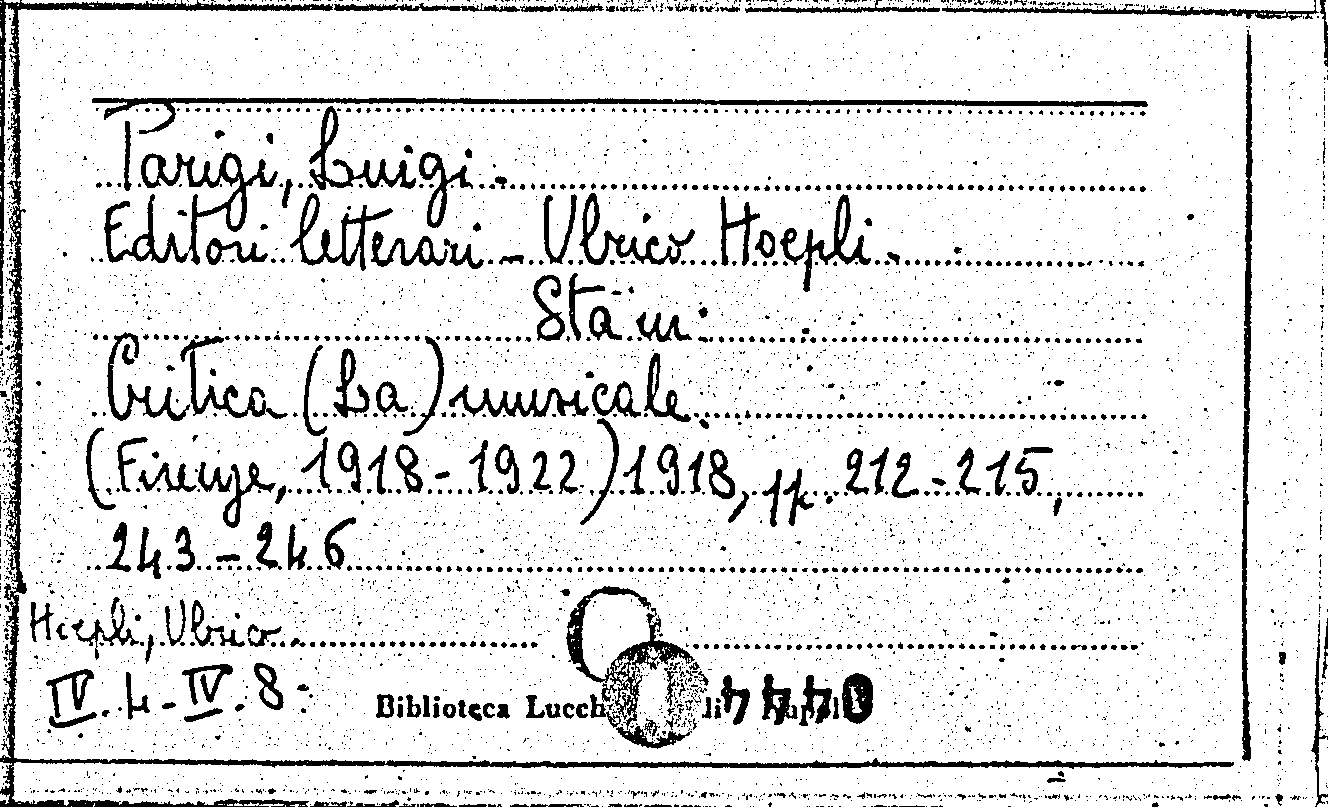 Parigi, Luigi.
Editori letterari - Ulrico Hoepli.
Sta in:
Critica (La) musicale
(Firenze, 1918-1922) 1918, pp. 212-215,
243-246
Hoepli, Ulrico.
IV. 4 - IV. 8.
Biblioteca